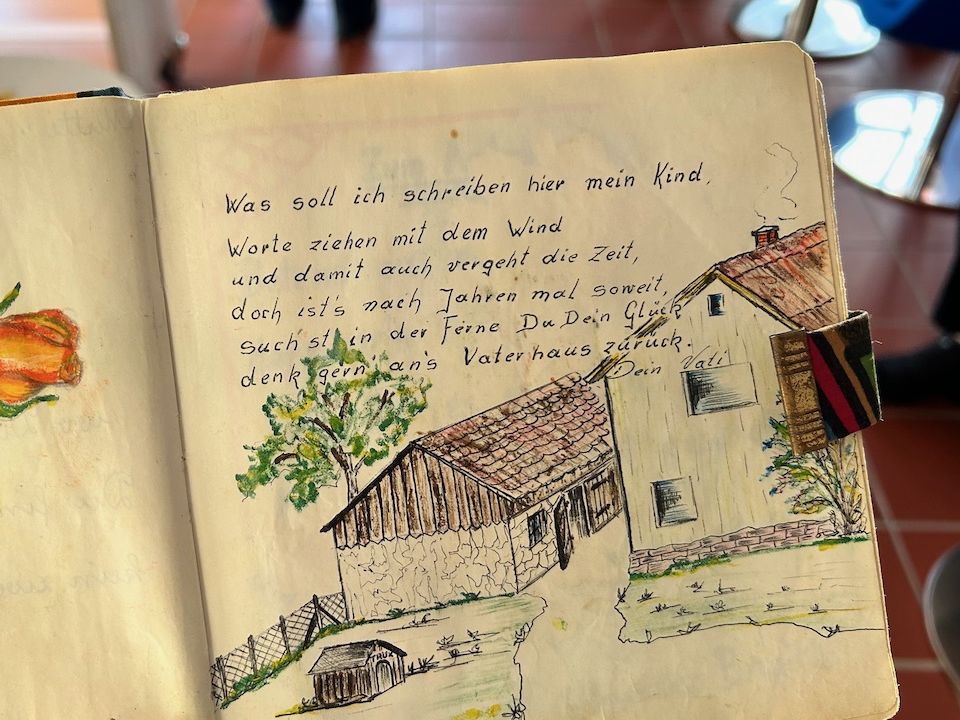 Was soll ich schreiben hier mein Kind,
Worte ziehen mit dem Wind
und damit auch vergeht die Zeit,
doch ist's nach Jahren mal soweit,
suchst in der Ferne Du Dein Glück
denk gern an's Vaterhaus zurück.
Dein Vati